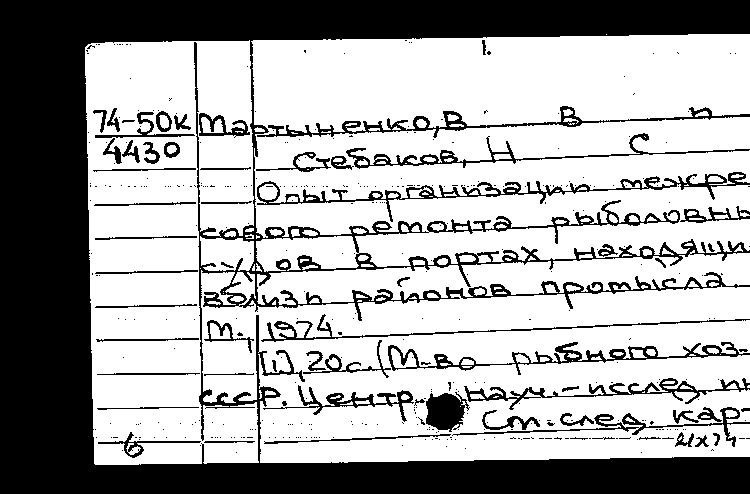 1.
74-50к Мартыненко, В В п
4430 Стебаков, Н С
Опыт организации межре
сового ремонта рыболовны
судов в портах, находящи
вблизи районов промысла.
М., 1974.
[1], 20с. (М-во рыбного хоз-
СССР. Центр. науч.-исслед. ин
См. след. кар
6 21X74